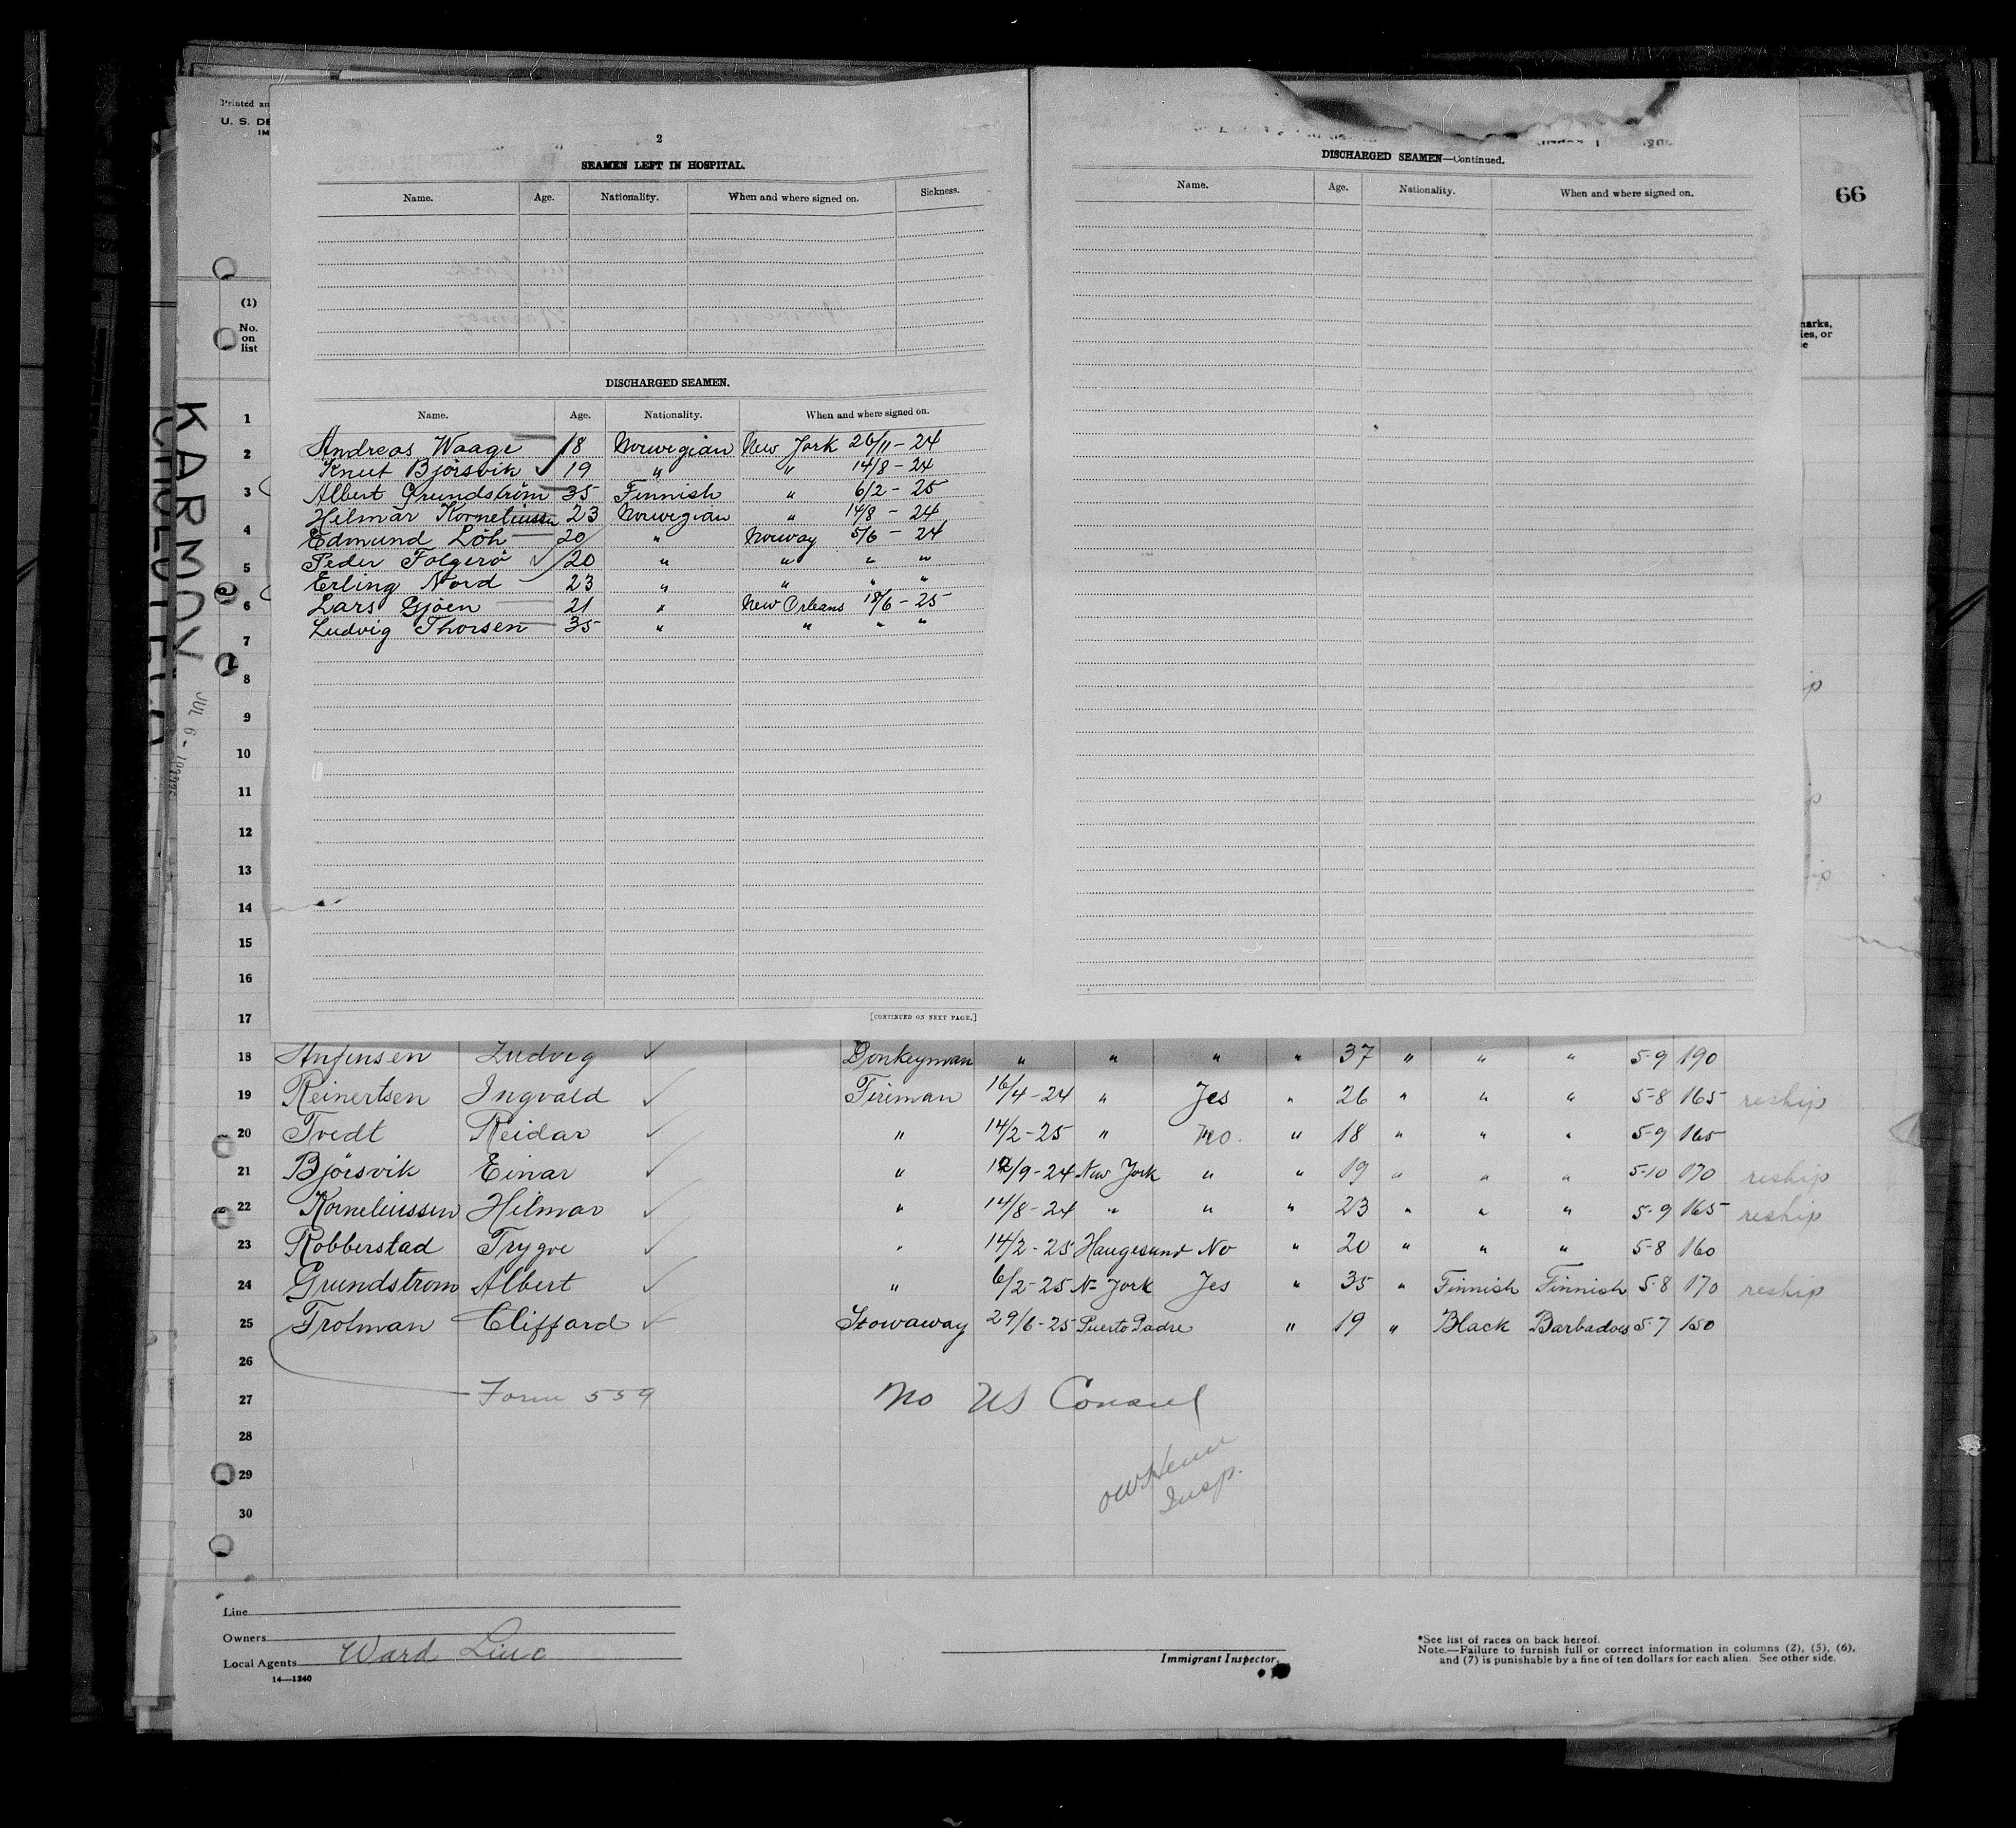 Printed an
U. S. DE
IM
2
SEAMEN LEFT IN HOSPITAL.
Name. Age. Nationality. When and where signed on. Sickness.
DISCHARGED SEAMEN.
Name. Age. Nationality. When and where signed on.
Andreas Waage 18 Norwegian New York 26/11 - 24
Knut Björsvik ✓ 19 " " 14/8 - 24
Albert Grundström 35 Finnish " 6/2 - 25
Hilmar Korneliussen 23 Norwegian " 14/8 - 24
Edmund Löh 20 " Norway 5/6 - 24
Peder Folgerö ✓ 20 " " " "
Erling Nord 23 " " " "
Lars Gjöen 21 " New Orleans 18/6 - 25
Ludvig Thorsen 35 " " " "
[CONTINUED ON NEXT PAGE.]
DISCHARGED SEAMEN—Continued.
Name. Age. Nationality. When and where signed on.
66
(1)
No.
on
list
marks,
ies, or
e
KARMOY
JUL 6 -
1
2
3
4
5
6
7
8
9
10
11
12
13
14
15
16
17
18 Ludvig ✓ Donkeyman " " " " 37 " " " 5-9 190
19 Reinertsen Ingvald ✓ Fireman 16/4-24 " Yes " 26 " " " 5-8 165 reship
20 Tvedt Reidar ✓ " 14/2-25 " No. " 18 " " " 5-9 165
21 Björsvik Einar ✓ " 12/9-24 New York " " 19 " " " 5-10 170 reship
22 Korneliussen Hilmar ✓ " 14/8-24 " " " 23 " " " 5-9 165 reship
23 Robberstad Trygve ✓ " 14/2-25 Haugesund No " 20 " " " 5-8 160
24 Grundstrom Albert ✓ " 6/2-25 N- York Yes " 35 " Finnish Finnish 5-8 170 reship
25 Trotman Clifford ✓ Stowaway 29/6-25 Puerto Padre " 19 " Black Barbadoes 5-7 150
26
27 Form 559 No US Consul
28
29
30
Insp.
Line
Owners
Local Agents Ward Line
14—1240
Immigrant Inspector.
*See list of races on back hereof.
Note.—Failure to furnish full or correct information in columns (2), (5), (6),
and (7) is punishable by a fine of ten dollars for each alien. See other side.